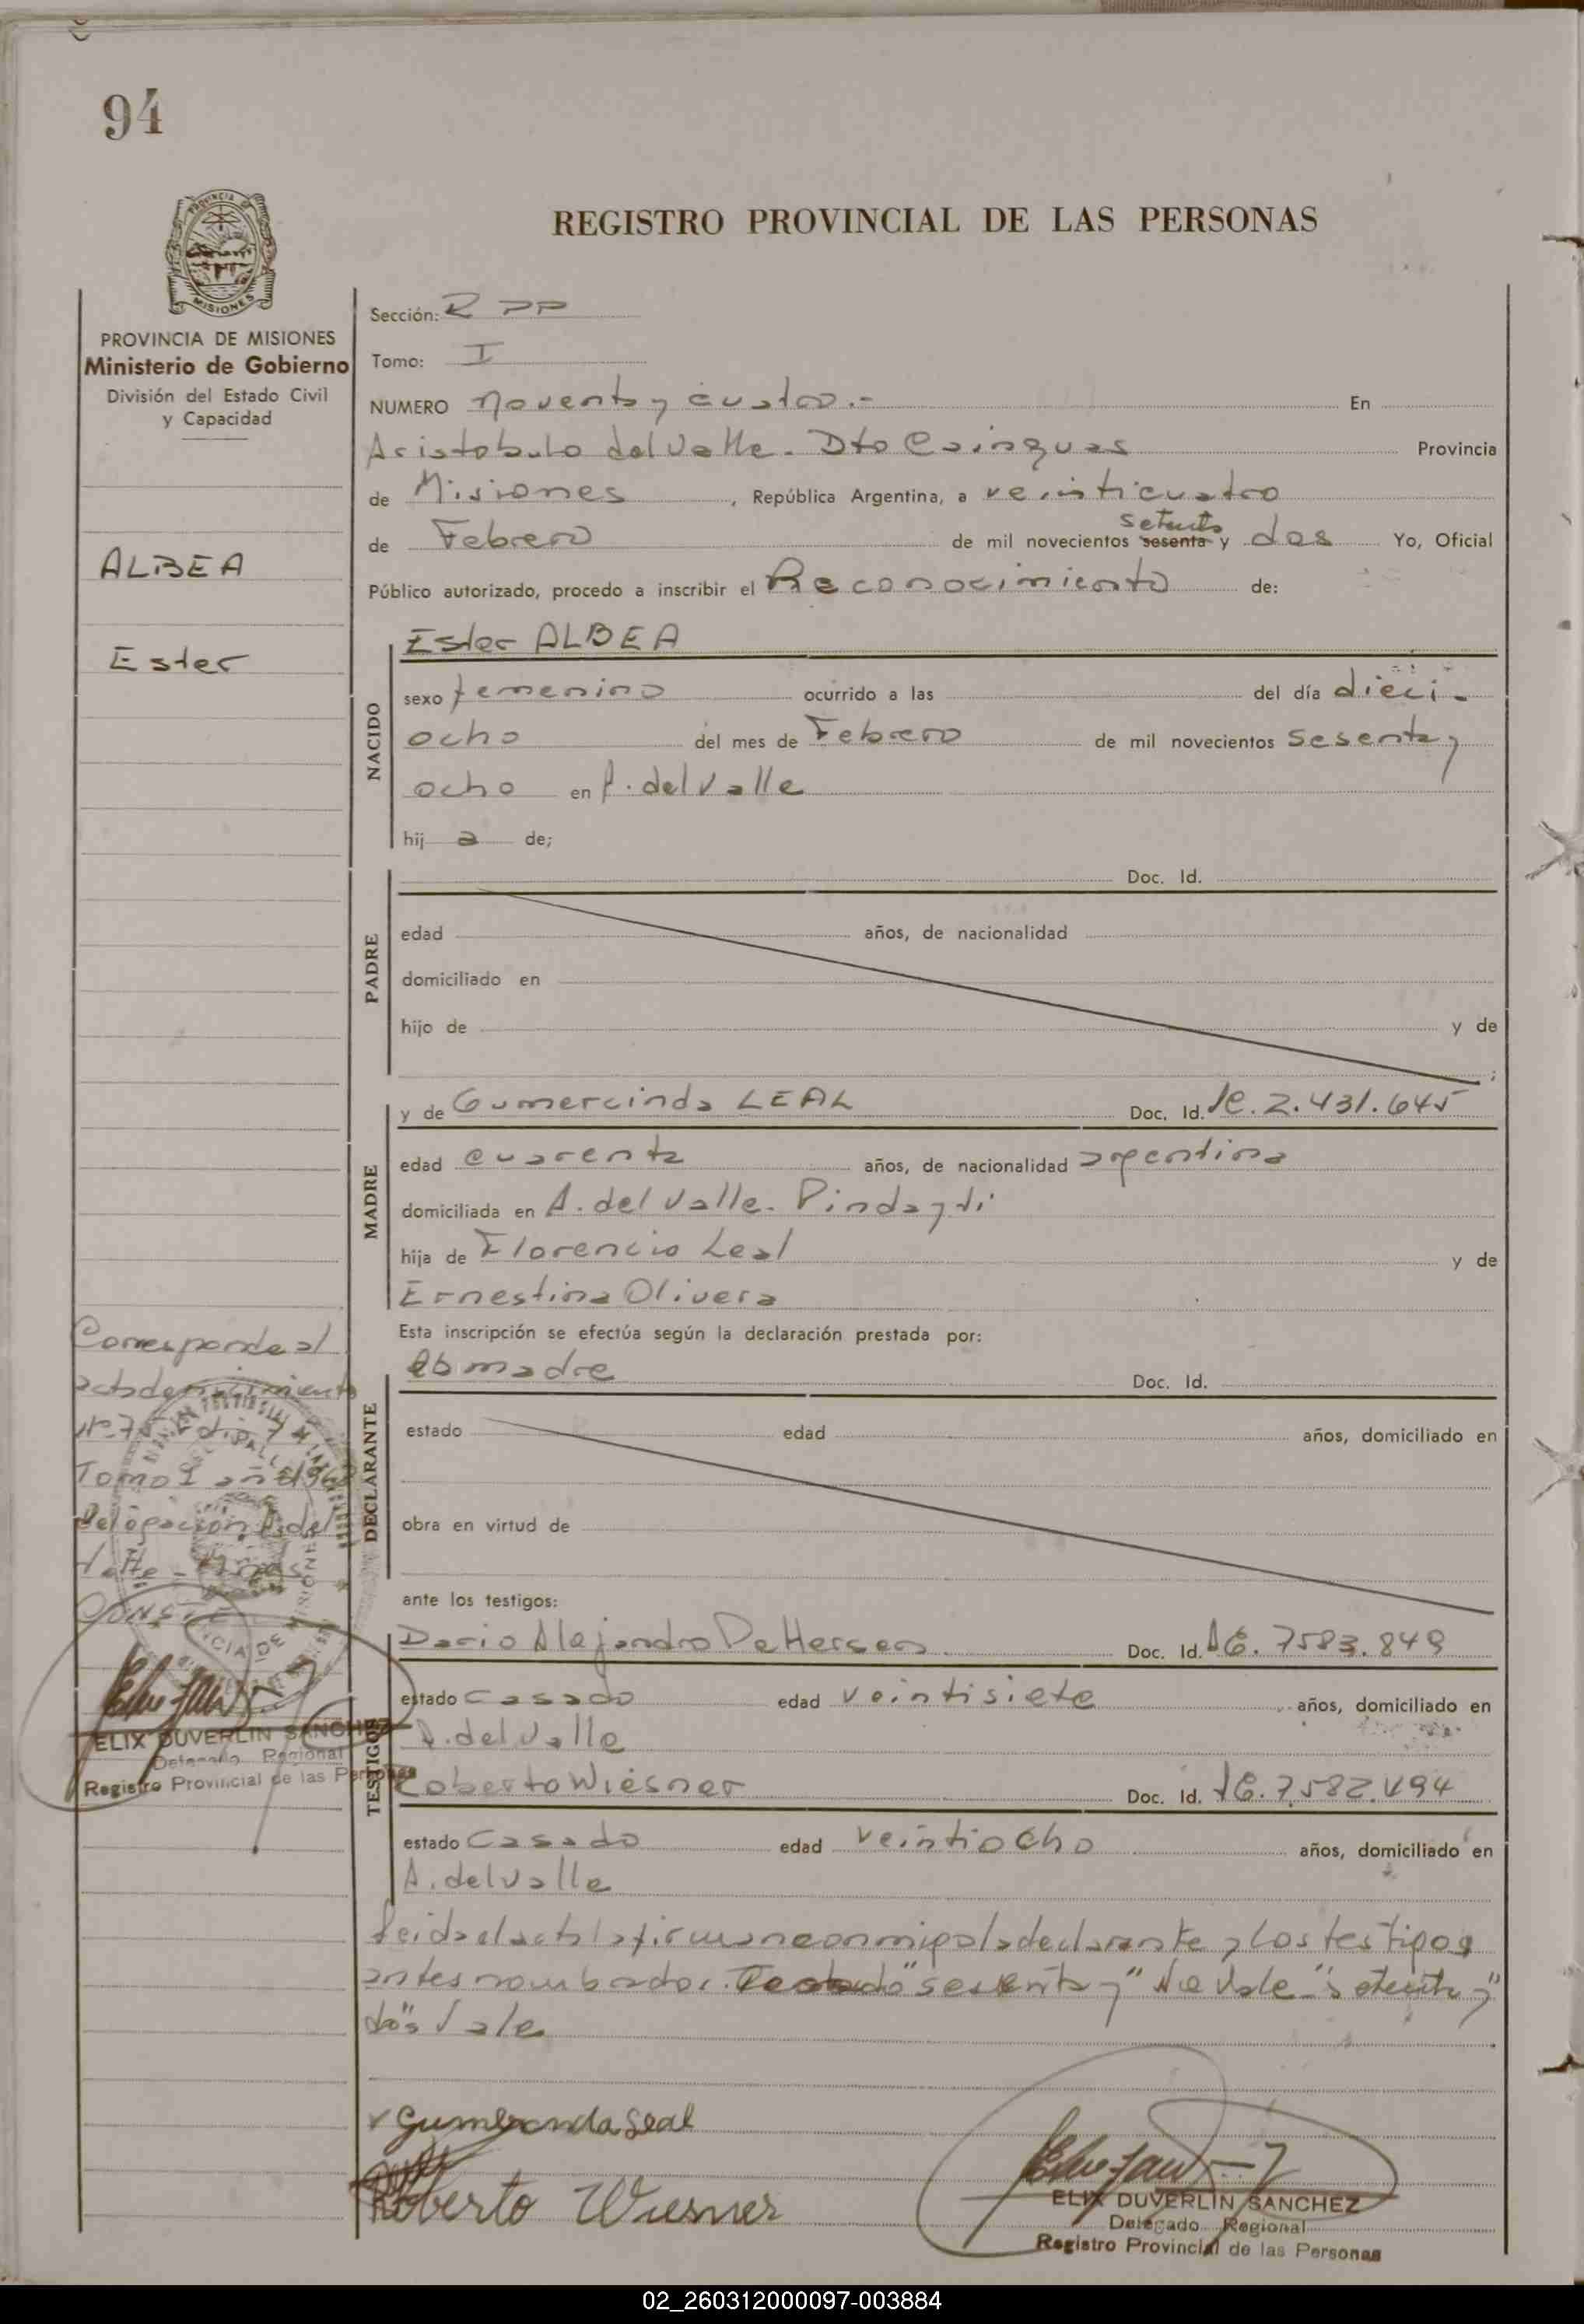 94
PROVINCIA DE MISIONES
REGISTRO PROVINCIAL DE LAS PERSONAS
PROVINCIA DE MISIONES
Ministerio de Gobierno
División del Estado Civil
y Capacidad
ALBEA
Ester
Sección: R PP
Tomo: I
NUMERO Noventa y cuatro.- En
Aristobulo del Valle. Dto Cainguas Provincia
de Misiones, República Argentina, a veinticuatro
setenta
de Febrero de mil novecientos sesenta y dos Yo, Oficial
Público autorizado, procedo a inscribir el Reconocimiento de:
NACIDO
Ester ALBEA
sexo femenino ocurrido a las del día dieci-
ocho del mes de Febrero de mil novecientos sesenta y
ocho en A. del Valle
hij a de;
PADRE
Doc. Id.
edad años, de nacionalidad
domiciliado en
hijo de y de
;
MADRE
y de Gumercinda LEAL Doc. Id. 2.431.645
edad cuarenta años, de nacionalidad argentina
domiciliada en A. del Valle. Pindayti
hija de Florencio Leal y de
Ernestina Olivera
Esta inscripción se efectúa según la declaración prestada por:
DECLARANTE
la madre Doc. Id.
estado edad años, domiciliado en
obra en virtud de
ante los testigos:
TESTIGOS
Dario Alejandro Doc. Id. 7583.849
estado casado edad veintisiete años, domiciliado en
A. del Valle
Roberto Wiesner Doc. Id. 7.582.494
estado casado edad veintiocho años, domiciliado en
A. del Valle
Leida el acta la firman conmigo la declarante y los testigos
antes nombrados. Testado "sesenta y" No Vale - "setenta y"
dos" Vale
Corresponde al
acta de nacimiento
Nº 74
Tomo I año 196
Delegación A. del
Valle - Mnes.
CONSTE
ELIX DUVERLIN SANCHEZ
Delegado Regional
Registro Provincial de las Personas
Gumercinda Leal
Roberto Wiesner
ELIX DUVERLIN SANCHEZ
Delegado Regional
Registro Provincial de las Personas
02_260312000097-003884